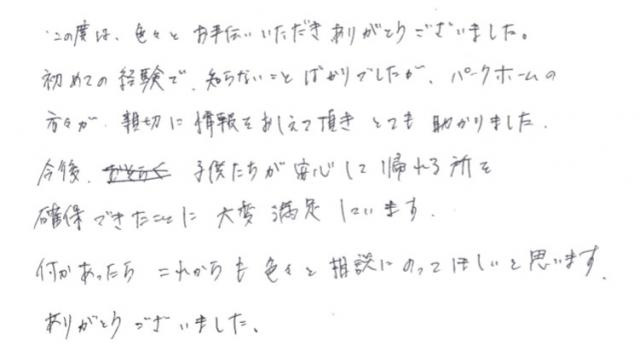 この度は、色々とお手伝いいただきありがとうございました。
初めての経験で、知らないことばかりでしたが、パークホームの
方々が、親切に情報をおしえて頂きとても助かりました。
今後、子供たちが安心して帰れる所を
確保できたことに大変満足しています。
何かあったらこれからも色々と相談にのってほしいと思います。
ありがとうございました。